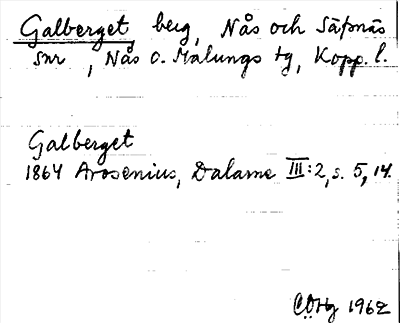 Galberget berg, Nås och Säfsnäs
snr, Nås o. Malungs tg, Kopp. l.
Galberget
1864 Arosenius, Dalarne III:2, s. 5, 14.
1962